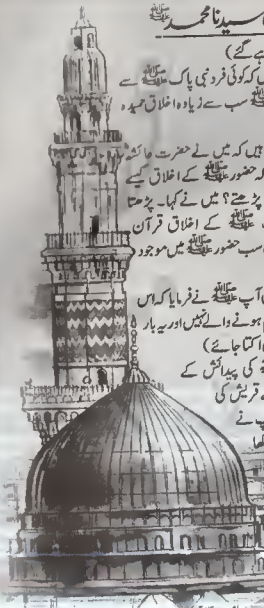 سیدنا محمد ﷺ
ہے گئے)
ں کہ کوئی فرد نبی پاک ﷺ سے
ﷺ سب سے زیادہ اخلاق حمیدہ
ہیں کہ میں نے حضرت عائشہ
کہ حضور ﷺ کے اخلاق کیسے
پڑھتے؟ میں نے کہا۔ پڑھتا
ﷺ کے اخلاق قرآن
سب حضور ﷺ میں موجود
آپ ﷺ نے فرمایا کہ اس
ہونے والے انہیں اور یہ بار
اکتا جائے)
کی پیدائش کے
قریش کی
پ نے
کھا